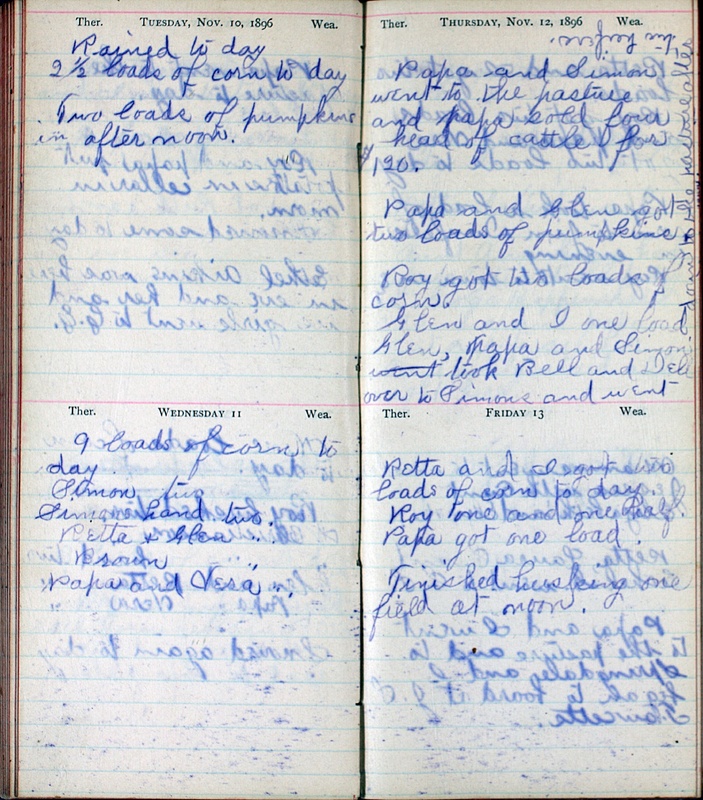 Ther. TUESDAY, NOV. 10, 1896 Wea.
Rained to day
2 ½ loads of corn to day
Two loads of pumpkins
in after noon.
Ther. WEDNESDAY 11 Wea.
9 loads of corn to
day
Simon two
Simon L and two.
Retta & Glen "
Brown "
Papa and Vera "
Ther. THURSDAY, NOV. 12, 1896 Wea.
Papa and Simon
went to the pasture
and papa sold four
head of cattle for
120.
Papa and Glen got
two loads of pumpkins
Roy got two loads of
corn.
Glen and I one load
Glen, Papa and Simon
went took Bell and Dell
over to Simons and went
down to the pasture after
the heifers.
Ther. FRIDAY 13 Wea.
Retta and I got two
loads of corn to day.
Roy one and one half
Papa got one load.
Finished husking one
field at noon.